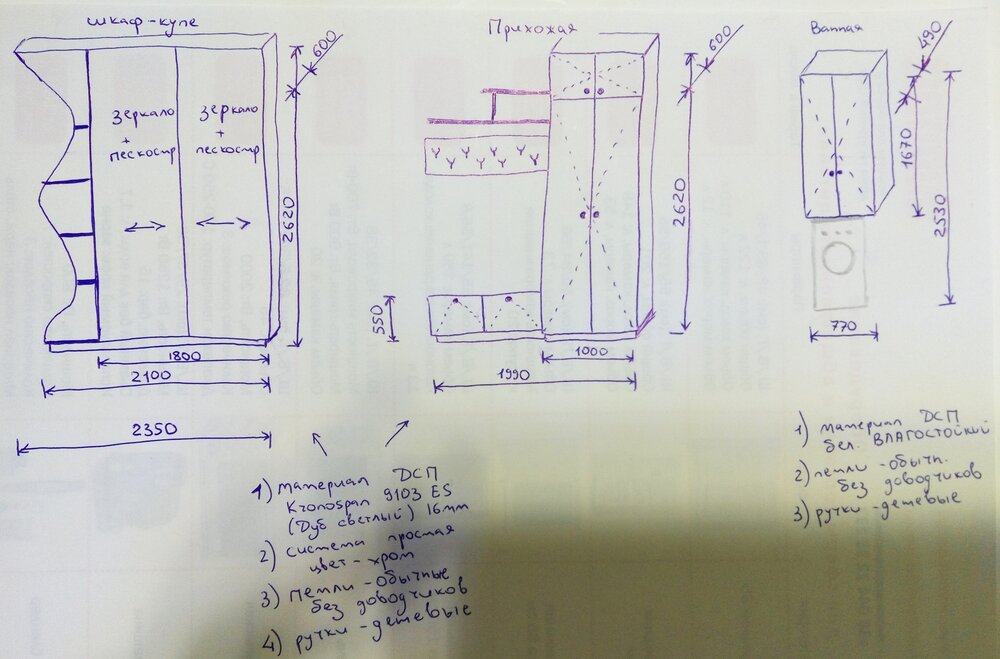 шкаф-купе
Прихожая
Ванная
600
600
490
зеркало
+
пескостр
зеркало
+
пескостр
2620
2620
1670
2530
550
1800
2100
2350
1000
1990
770
1) материал ДСП
Kronospan 9103 ES
(Дуб светлый) 16мм
2) система простая
цвет - хром
3) петли - обычные
без доводчиков
4) ручки - дешевые
1) материал ДСП
бел. ВЛАГОСТОЙКИЙ
2) петли - обычн.
без доводчиков
3) ручки - дешевые